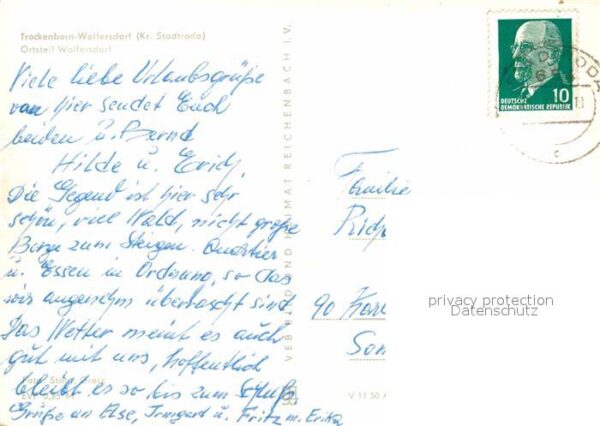 Trockenborn-Wolfersdorf (Kr. Stadtroda)
Ortsteil Wolfersdorf
Viele liebe Urlaubsgrüße
von hier sendet Euch
beiden u. Bernd
Hilde u. Erich.
Die Gegend ist hier sehr
schön, viel Wald, nicht große
Berge zum Steigen. Quartier
u. Essen in Ordnung, so das
wir angenehm überrascht sind
Das Wetter meint es auch
gut mit uns, hoffentlich
bleibt es so bis zum Schluß.
Grüße an Else, Irmgard u. Fritz m. Erika
VEB BILD UND HEIMAT REICHENBACH I.V.
V 11 50
10
DEUTSCHE
DEMOKRATISCHE REPUBLIK
c
Familie
90
privacy protection
Datenschutz